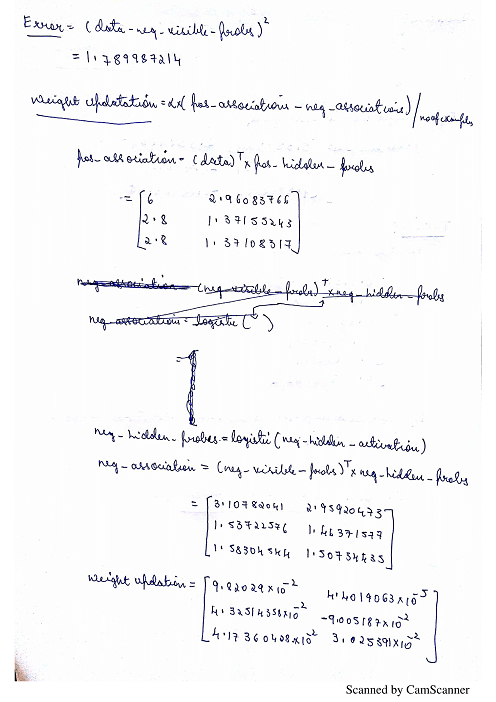 Error = (data-neg-visible-probs)²
= 1.789987214
Weight updatation = α×(pos-association - neg-associations)/no of examples
pos-association = (data)ᵀ × pos-hidden-probs
= [6 2.96083766
2.8 1.37155243
2.8 1.37108317]
neg-association = (neg-visible-probs)ᵀ × neg-hidden-probs
neg-association = logistic ( )
=
neg-hidden-probes = logistic (neg-hidden-activation)
neg-association = (neg-visible-probs)ᵀ × neg-hidden-probs
= [3.10782041 2.95920473
1.53722576 1.46371577
1.58304544 1.50754435]
Weight updation = [9.82029×10⁻² 4.4019063×10⁻⁵
4.32514358×10⁻² -9.005187×10⁻²
4.17360408×10⁻² 3.025391×10⁻²]
Scanned by CamScanner